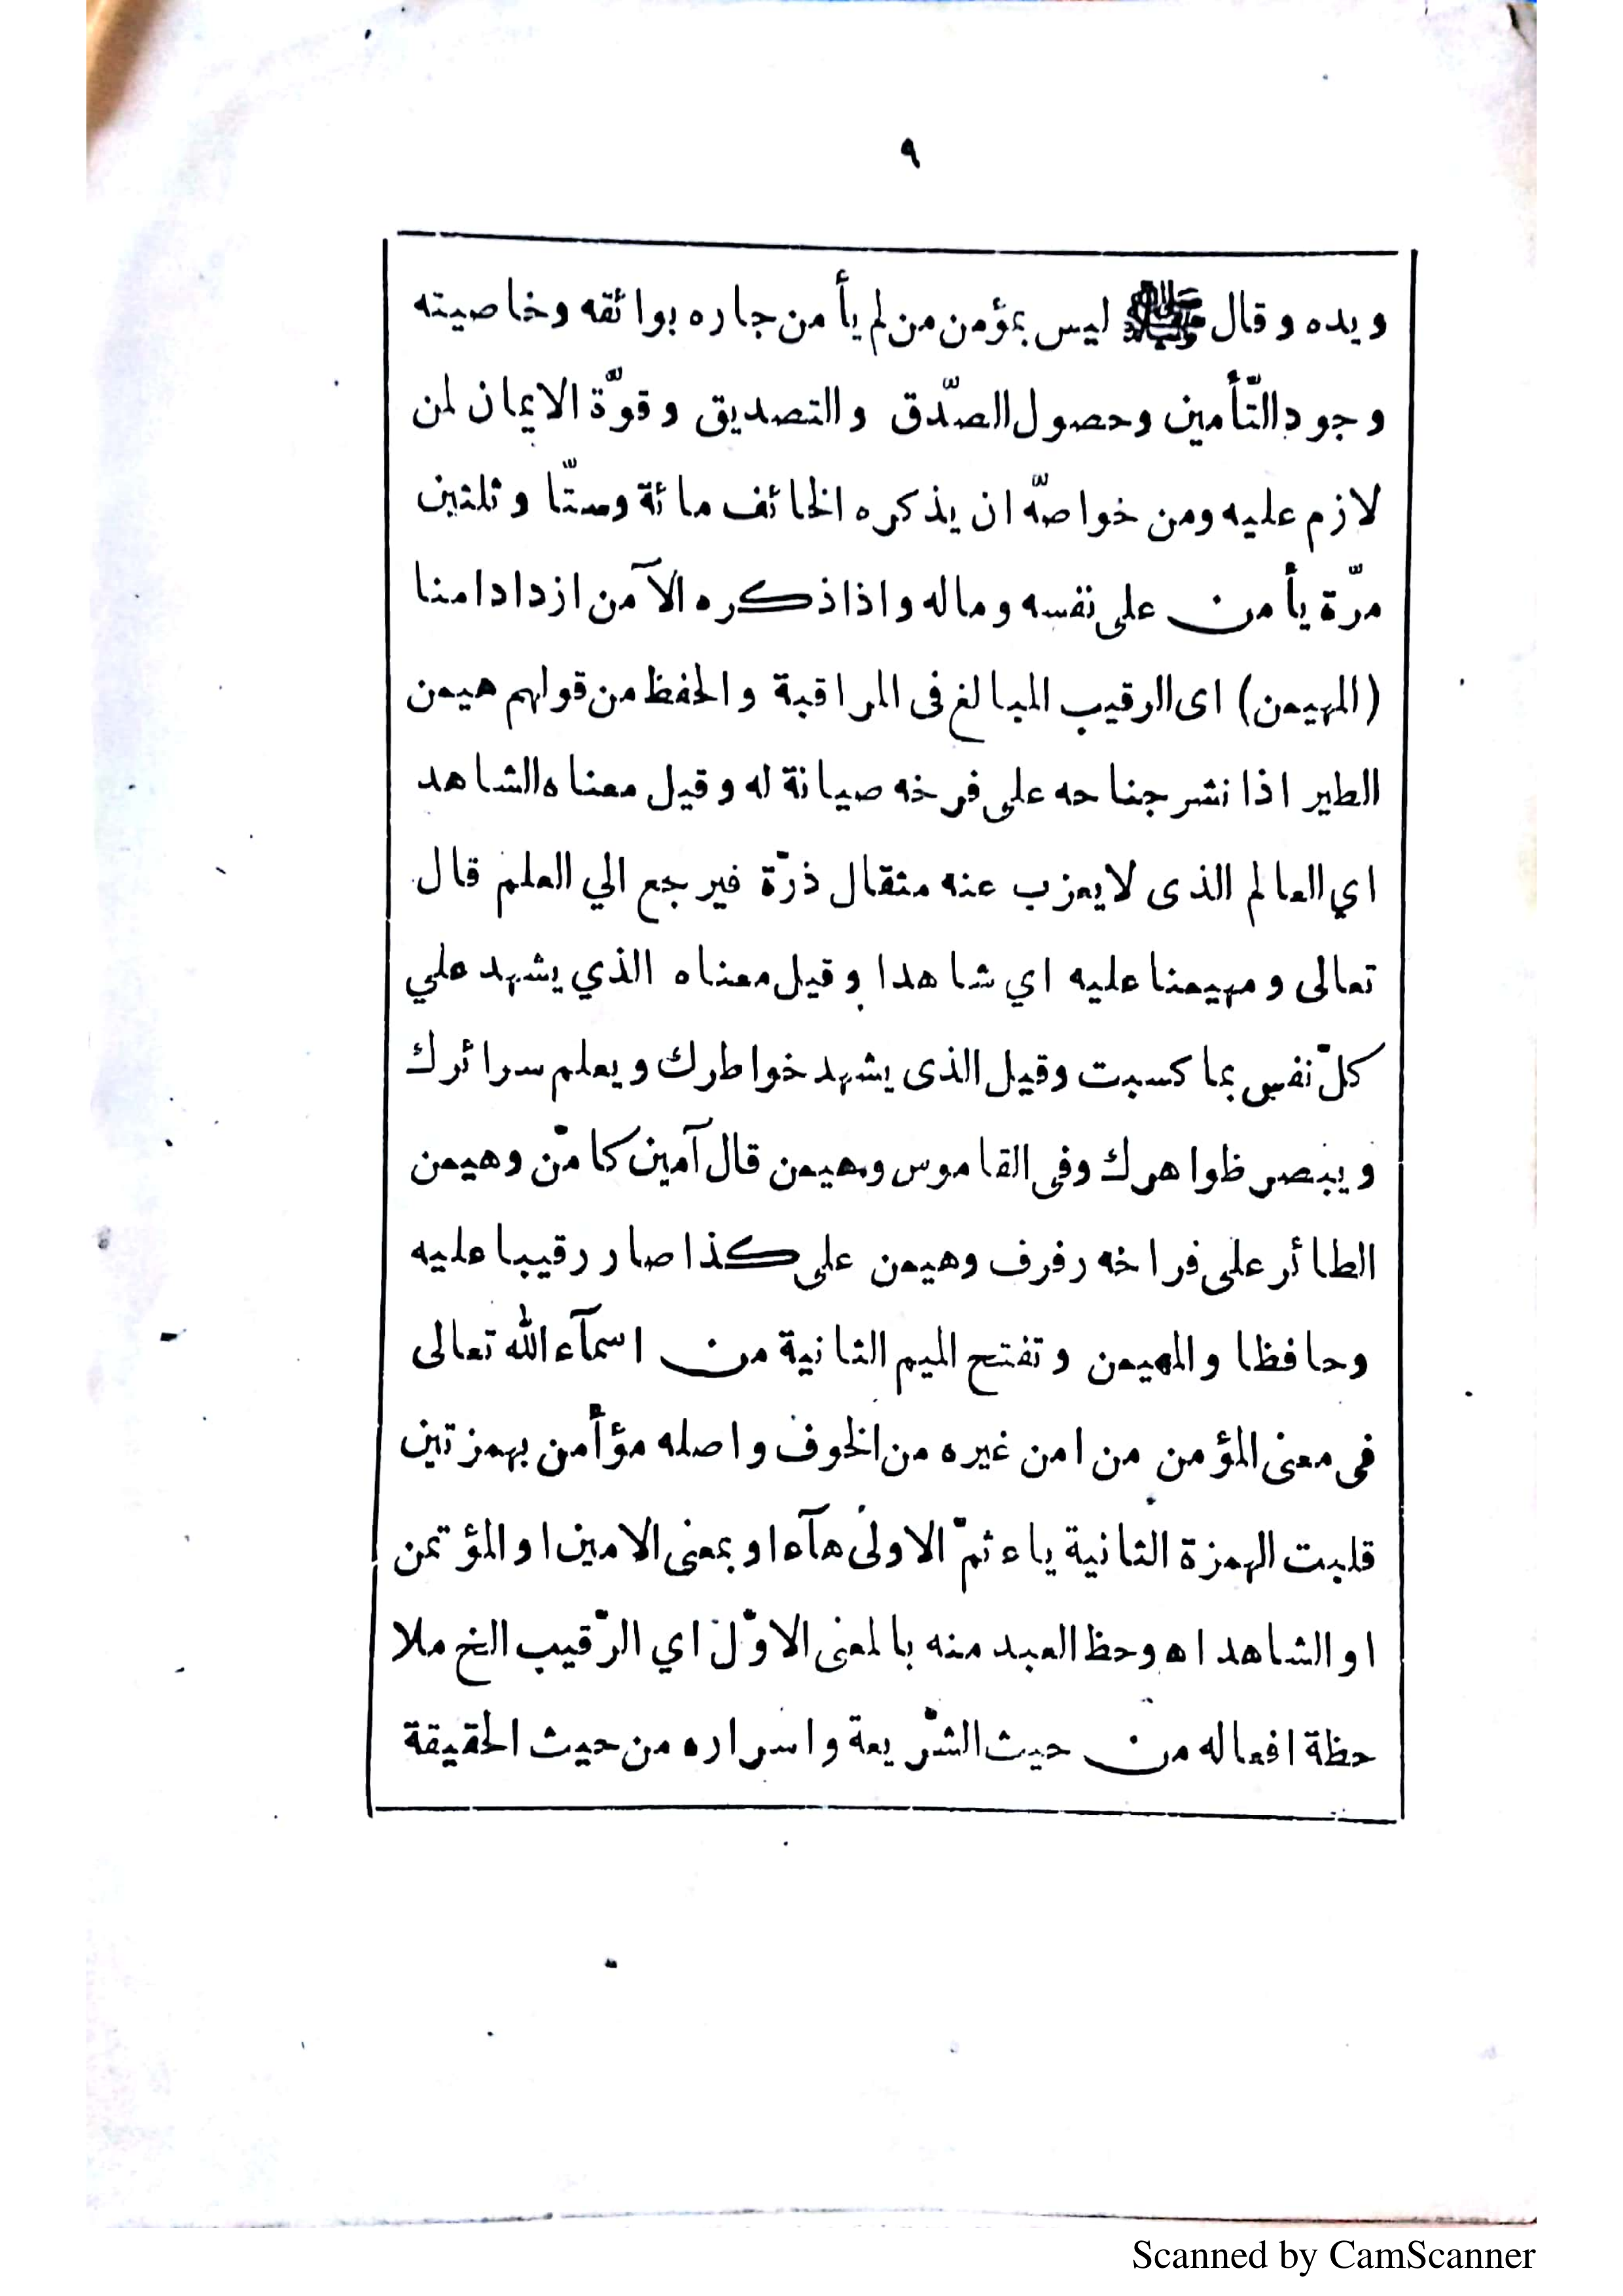 ٩
ويده وقال ﷺ ليس بمؤمن من لم يأمن جاره بوائقه وخاصيته
وجود التّأمين وحصول الصّدق والتصديق وقوّة الايمان لمن
لازم عليه ومن خواصّه ان يذكره الخائف مائة وستّا وثلثين
مرّة يأمن على نفسه وماله واذا ذكره الآمن ازداد امنا
(المهيمن) اى الرقيب المبالغ فى المراقبة والحفظ من قولهم هيمن
الطير اذا نشر جناحه على فرخه صيانة له وقيل معناه الشاهد
اي العالم الذى لا يعزب عنه مثقال ذرّة فيرجع الي العلم قال
تعالى ومهيمنا عليه اي شاهدا وقيل معناه الذي يشهد علي
كلّ نفس بما كسبت وقيل الذى يشهد خواطرك ويعلم سرائرك
ويبصر ظواهرك وفى القاموس وهيمن قال آمين كامّن وهيمن
الطائر على فراخه رفرف وهيمن على كذا صار رقيبا عليه
وحافظا والمهيمن وتفتح الميم الثانية من اسمآء الله تعالى
فى معنى المؤمن من امن غيره من الخوف واصله مؤأمن بهمزتين
قلبت الهمزة الثانية ياء ثمّ الاولى هآء او بمعنى الامين او المؤتمن
او الشاهد اه وحظ العبد منه بالمعنى الاوّل اي الرّقيب الخ ملا
حظة افعاله من حيث الشّريعة واسراره من حيث الحقيقة
Scanned by CamScanner